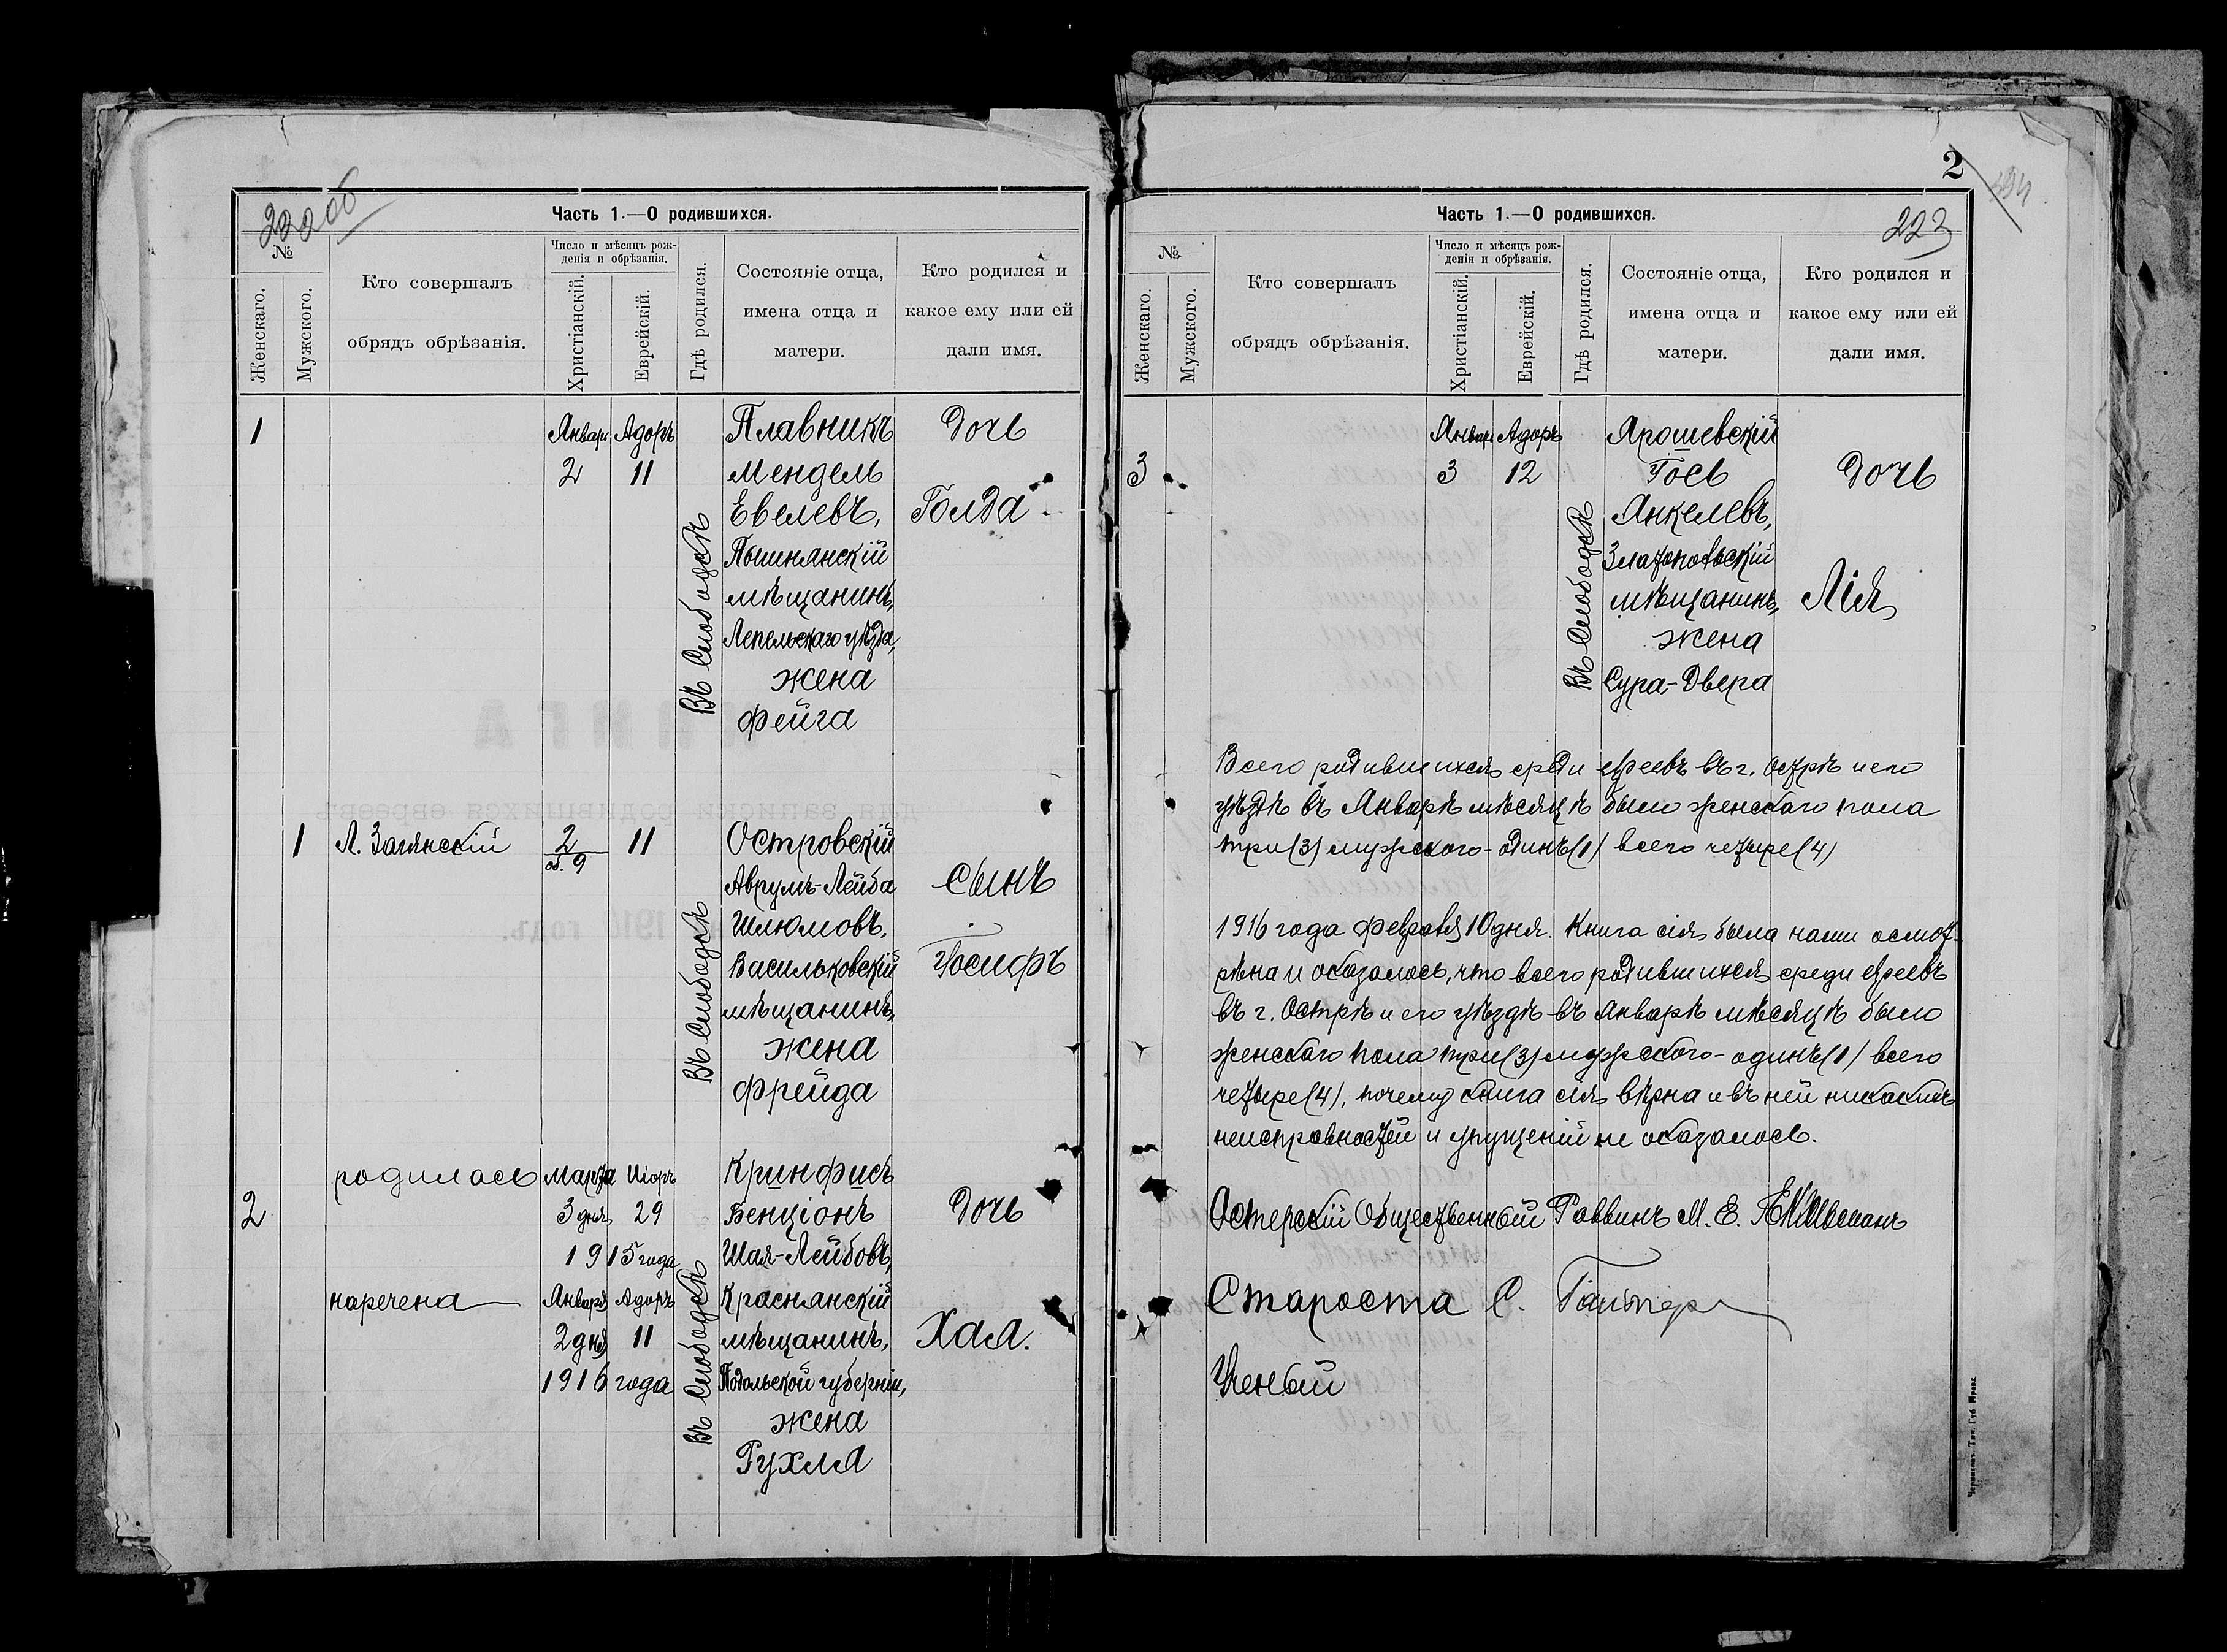 222 об
Часть 1.—О родившихся.
№
Женскаго.
Мужского.
Кто совершалъ
обрядъ обрѣзанія.
Число и мѣсяцъ рож-
денія и обрѣзанія.
Христіанскій.
Еврейскій.
Гдѣ родился.
Состояніе отца,
имена отца и
матери.
Кто родился и
какое ему или ей
дали имя.
1 Январ. Адоръ Плавникъ Дочь
2 11 Мендель
Евелевъ, Голда
Пышнянскій
мѣщанинъ,
Лепельскаго уѣзда,
жена
Фейга
Въ Слободкѣ
1 Л. Загянскій 2 11 Островскій
об. 9
Аврумъ-Лейба Сынъ
Шлюмовъ,
Васильковскій Іосифъ
мѣщанинъ,
жена
Фрейда
Въ Слободкѣ
родилась Марта Иіоръ Кринфисъ
2 3 дня 29 Бенціонъ Дочь
1915 года Шая-Лейбовъ,
наречена Января Адоръ Краснянскій
2 дня 11 мѣщанинъ, Хая.
1916 года Подольской губерніи,
жена
Рухля
Въ Слободкѣ
2
223
Часть 1.—О родившихся.
№
Женскаго.
Мужского.
Кто совершалъ
обрядъ обрѣзанія.
Число и мѣсяцъ рож-
денія и обрѣзанія.
Христіанскій.
Еврейскій.
Гдѣ родился.
Состояніе отца,
имена отца и
матери.
Кто родился и
какое ему или ей
дали имя.
Январ. Адоръ Ярошевскій
3 3 12 Гось Дочь
Янкелевъ,
Златопольскій
мѣщанинъ, Лія
жена
Сура-Двера
Въ Слободкѣ
Всего родившихся среди евреевъ въ г. Острѣ и его
уѣздѣ въ Январѣ мѣсяцѣ было женскаго пола
три (3) мужского - одинъ (1) всего четыре (4)
1916 года Февраля 10 дня. Книга сія была нами осмот-
рѣна и оказалось, что всего родившихся среди евреевъ
въ г. Острѣ и его уѣздѣ въ Январѣ мѣсяцѣ было
женскаго пола три (3) мужского - одинъ (1) всего
четыре (4), почему книга сія вѣрна и въ ней никакихъ
неисправностей и упущеній не оказалось.
Остерскій Общественный Раввинъ М. Е.
Староста С.
Ученый